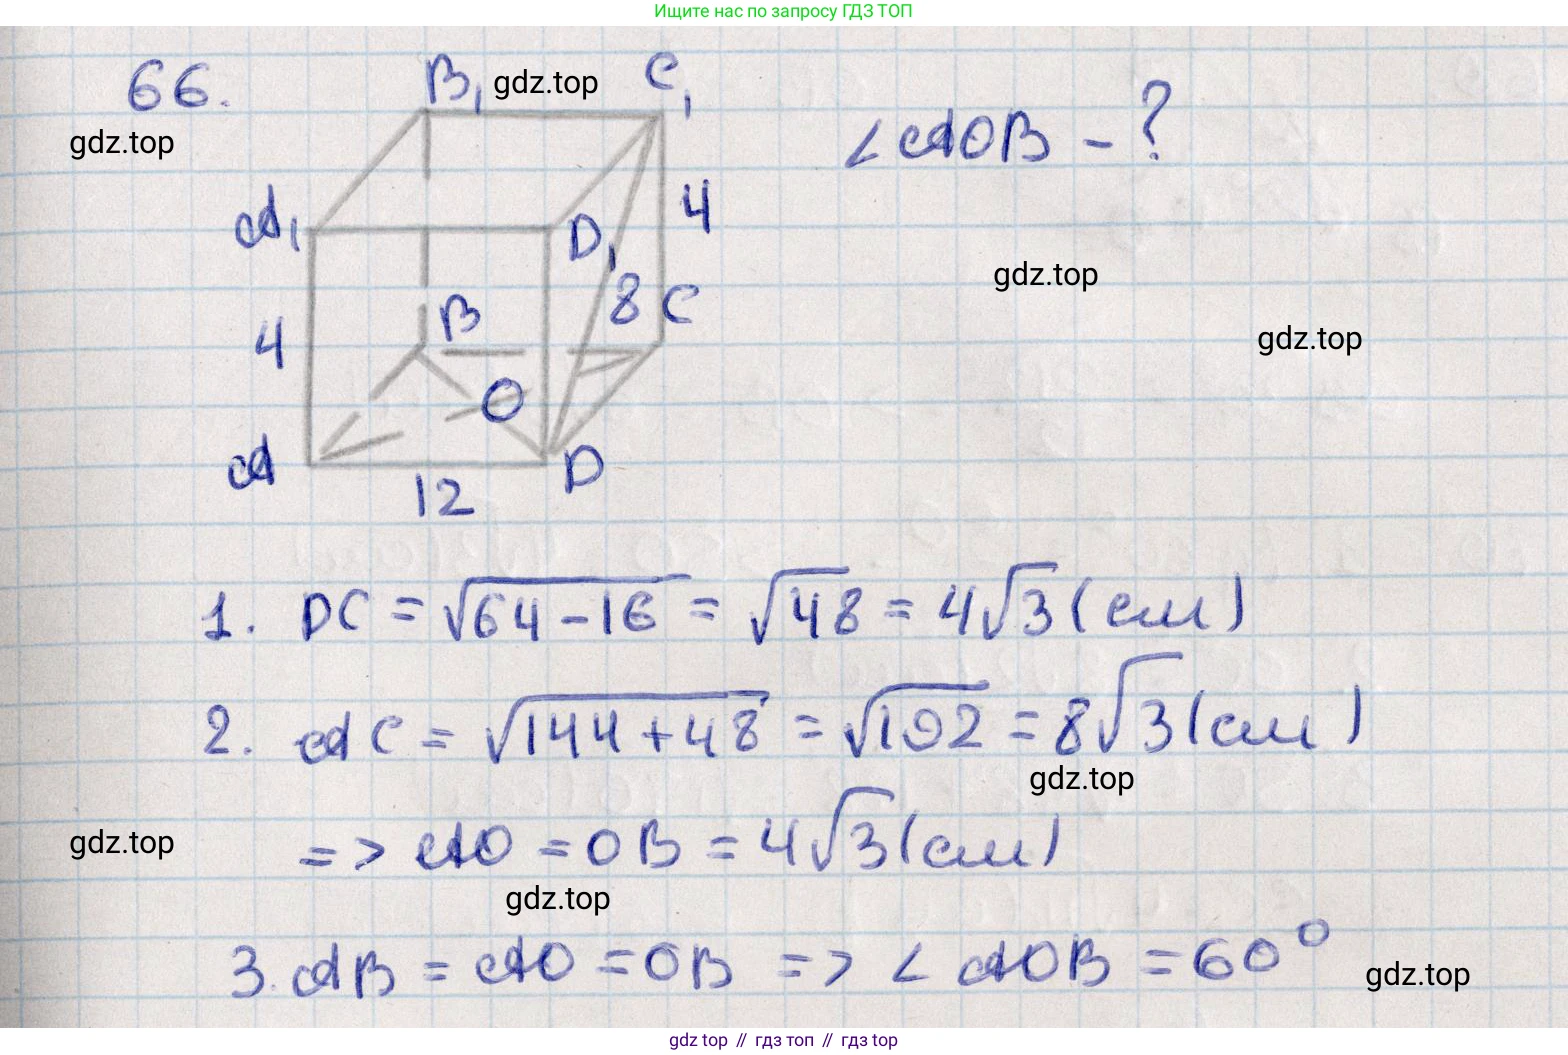 Ищите нас по запросу ГДЗ ТОП
66.
B₁
gdz.top
C₁
∠AOB - ?
gdz.top
A₁
D₁
4
gdz.top
8
C
B
4
gdz.top
O
A
D
12
1. DC = √64-16 = √48 = 4√3 (см)
2. AC = √144+48 = √192 = 8√3 (см)
gdz.top
gdz.top
=> AO = OB = 4√3 (см)
gdz.top
3. AB = AO = OB => ∠AOB = 60°
gdz.top
gdz top // гдз топ // гдз top